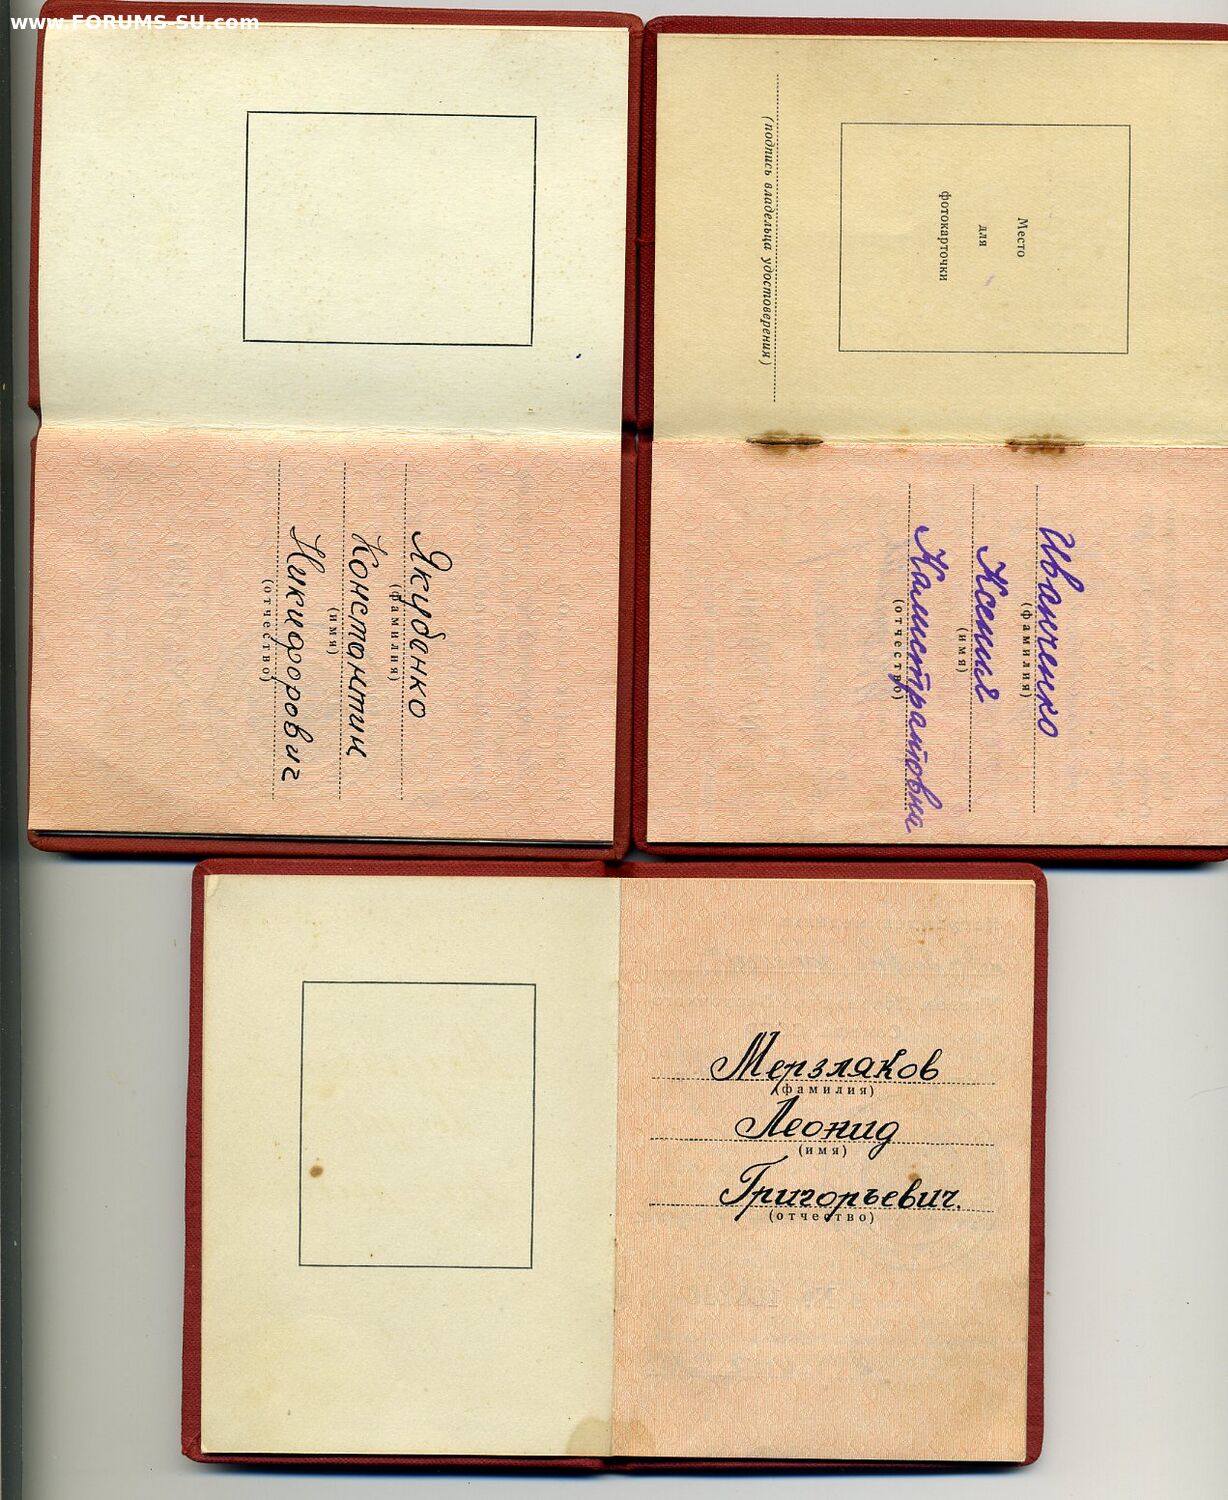 www.FORUMS-SU.com
Якубанко
(фамилия)
Константин
(имя)
Никифорович
(отчество)
Место
для
фотокарточки
(подпись владельца удостоверения)
Иванченко
(фамилия)
Ксения
(имя)
Калистратовна
(отчество)
Мерзляков
(фамилия)
Леонид
(имя)
Григорьевич.
(отчество)